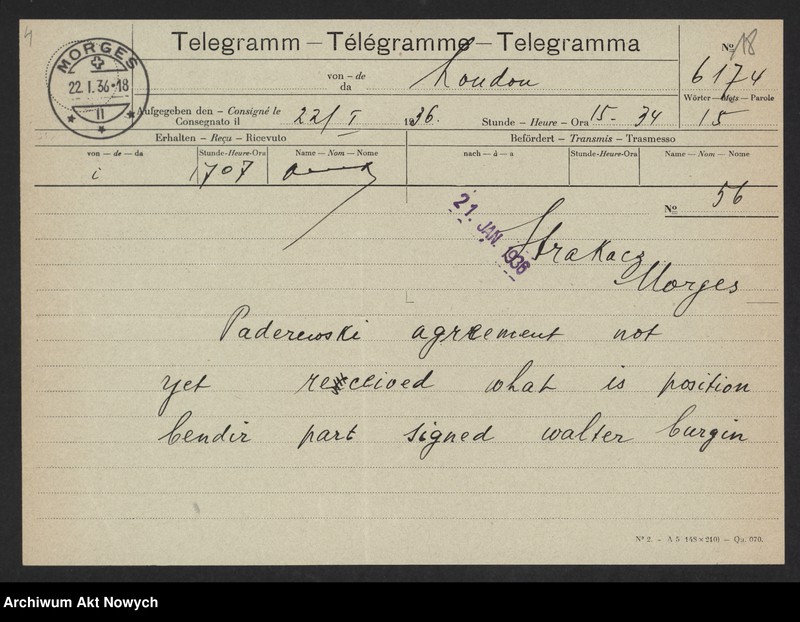 4
Telegramm – Télégramme – Telegramma
Nº 18
MORGES
22.I.36-18
II
von – de
da
London
6174
Wörter – Mots – Parole
15
Aufgegeben den – Consigné le
Consegnato il
22/I 1936.
Stunde – Heure – Ora 15 - 34
Erhalten – Reçu – Ricevuto
Befördert – Transmis – Trasmesso
von – de – da
Stunde-Heure-Ora
Name – Nom – Nome
nach – à – a
Stunde-Heure-Ora
Name – Nom – Nome
i
1707
Nº 56
21. JAN. 1936
Strakacz
Morges
Paderewski agreement not
yet received what is position
bendir part signed walter burgin
Nº 2. – A 5 (148×210) – Qu. 070.
Archiwum Akt Nowych